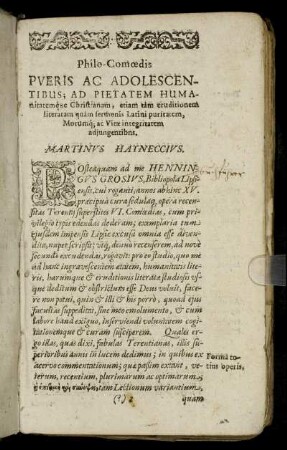 Philo-Comœdis
PVERIS AC ADOLESCEN-
TIBUS; AD PIETATEM HUMA-
nitatemq́ue Christianam, etiam tàm eruditionem
literatam quàm sermonis Latini puritatem,
Morumq́; ac Vitæ integritatem
adjungentibus,
MARTINUS HAYNECCIUS.
POsteaquam ad me HENNIN-
GUS GROSIUS, Bibliopola Lips-
ensis, cui roganti, annos abhinc XV.
præcipuâ cura sedulaq́; opera recen-
sitas Terentii superstites VI. Comœdias, cum pri-
vilegiis typis edendas dederam; exemplaria earum
ejusdem impensis Lipsiæ excusa omnia esse divendi-
ta, nuper scripsit; utq́; denuò recenserem, ad novè
secundò excudendas, rogavit: pro eo studio, quo me
ad hanc ingravescentem ætatem, humanitatis lite-
ris, harumque & eruditionis literatæ studiosis us-
que deditum & obstrictum esse Deus voluit, face-
re non potui, quin & illi & his porrò, quoad ejus
facultas suppeditet, sine meo emolumento, & cum
labore haud exiguo, inserviendi voluntatem cogi-
tationemque & curam susciperem. Quales er-
go illas, quas dixi, fabulas Terentianas, illis su-
perioribus annis in lucem dedimus; in quibus ex
acervo commentationum; quæ passim extant, ve-
terum, recentium, plurimarum ac optimarum;
tam Lectionum variantium,
Forma to-
tius operis,
(?) 2
quam